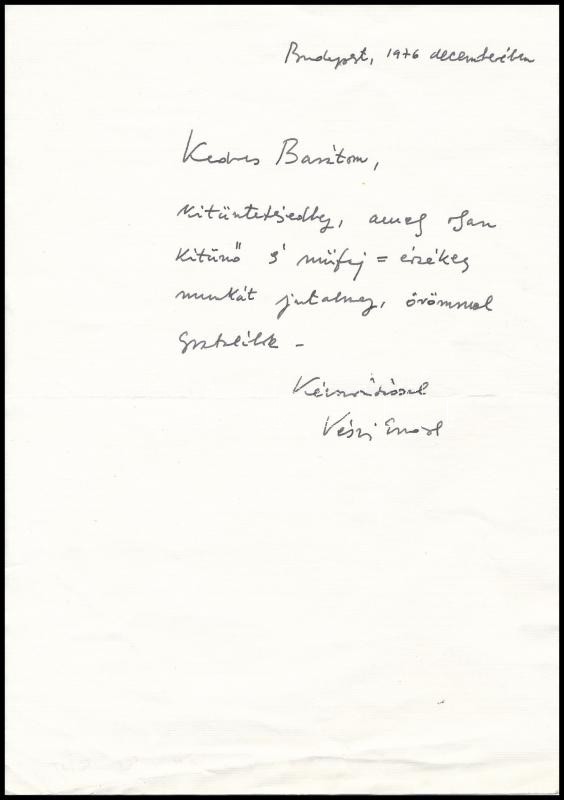 Budapest, 1976 decemberében
Kedves Barátom,
Kitüntetésedhez, amely olyan
kitünő s műfaj = érzékeny
munkát jutalmaz, örömmel
gratulálok -
Kézszorítással
Vészi Endre